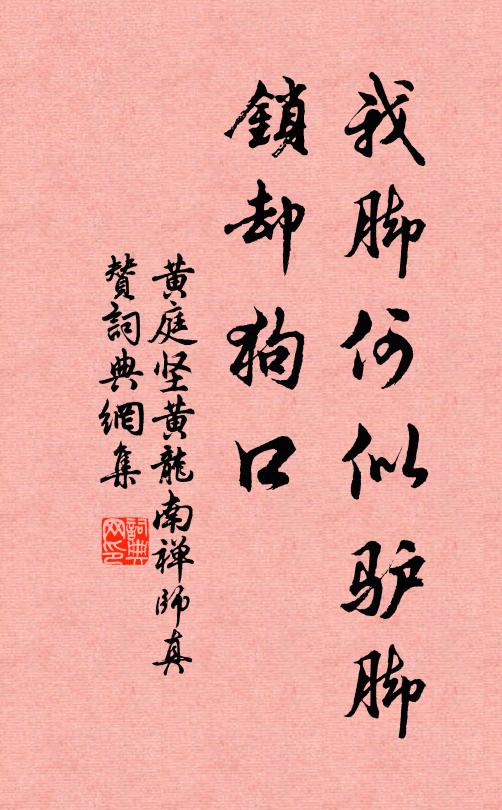 我脚何似驴脚
鎖却狗口
黄庭坚黄龍南禅師真
賛詞典網集
詞典
网印